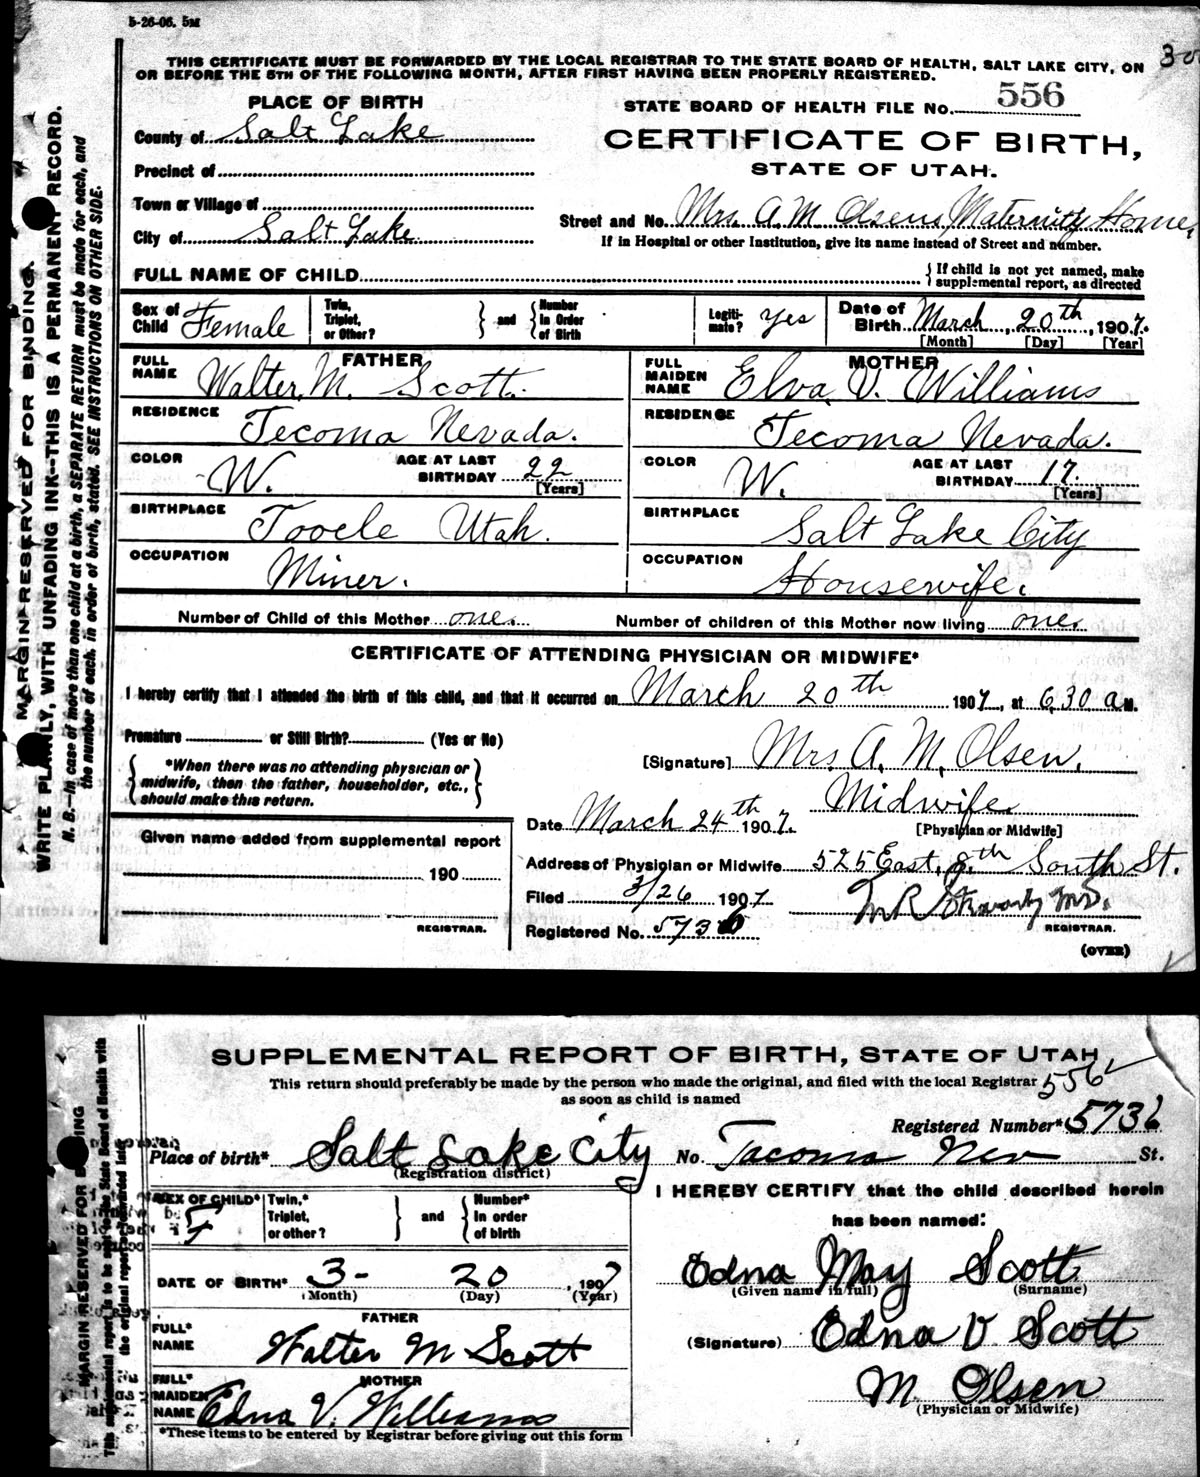 5-26-06. 5M
THIS CERTIFICATE MUST BE FORWARDED BY THE LOCAL REGISTRAR TO THE STATE BOARD OF HEALTH, SALT LAKE CITY, ON
OR BEFORE THE 5TH OF THE FOLLOWING MONTH, AFTER FIRST HAVING BEEN PROPERLY REGISTERED.
PLACE OF BIRTH
STATE BOARD OF HEALTH FILE No. 556
County of Salt Lake
CERTIFICATE OF BIRTH,
STATE OF UTAH.
Precinct of
Town or Village of
Street and No. Mrs. A. M. Olsens Maternity Home.
City of Salt Lake
If in Hospital or other Institution, give its name instead of Street and number.
FULL NAME OF CHILD
If child is not yet named, make
supplemental report, as directed
Sex of Child Female
Twin, Triplet, or Other? and Number in Order of Birth
Legiti-mate? Yes
Date of Birth March, 20th, 1907.
[Month] [Day] [Year]
FATHER
FULL NAME Walter. M. Scott.
MOTHER
FULL MAIDEN NAME Elva. V. Williams
RESIDENCE Tecoma Nevada.
RESIDENCE Tecoma Nevada.
COLOR W. AGE AT LAST BIRTHDAY 22 [Years]
COLOR W. AGE AT LAST BIRTHDAY 17. [Years]
BIRTHPLACE Tooele Utah.
BIRTHPLACE Salt Lake City
OCCUPATION Miner.
OCCUPATION Housewife.
Number of Child of this Mother one. Number of children of this Mother now living one.
CERTIFICATE OF ATTENDING PHYSICIAN OR MIDWIFE*
I hereby certify that I attended the birth of this child, and that it occurred on March 20th 1907, at 6.30 a M.
Premature or Still Birth? (Yes or No)
[Signature] Mrs. A. M. Olsen.
*When there was no attending physician or
midwife, then the father, householder, etc.,
should make this return.
Midwife.
[Physician or Midwife]
Date March 24th 1907.
Given name added from supplemental report
190
REGISTRAR.
Address of Physician or Midwife 525 East, 8th South St.
Filed 3/26 1907
M.D.
REGISTRAR.
Registered No. 5736
(OVER)
MARGIN RESERVED FOR BINDING.
WRITE PLAINLY, WITH UNFADING INK--THIS IS A PERMANENT RECORD.
N. B.--In case of more than one child at a birth, a SEPARATE RETURN must be made for each, and
the number of each, in order of birth, stated. SEE INSTRUCTIONS ON OTHER SIDE.
SUPPLEMENTAL REPORT OF BIRTH, STATE OF UTAH
This return should preferably be made by the person who made the original, and filed with the local Registrar
as soon as child is named
556
Registered Number* 5736
Place of birth* Salt Lake City No. Tacoma Nev St.
(Registration district)
SEX OF CHILD* F
Twin,* Triplet, or other? and Number* In order of birth
I HEREBY CERTIFY that the child described herein
has been named:
DATE OF BIRTH* 3- 20, 1907
(Month) (Day) (Year)
Edna May Scott
(Given name in full) (Surname)
FATHER
FULL* NAME Walter M Scott
(Signature) Edna V Scott
MOTHER
FULL* MAIDEN NAME Edna V. Williams
M. Olsen
(Physician or Midwife)
*These items to be entered by Registrar before giving out this form